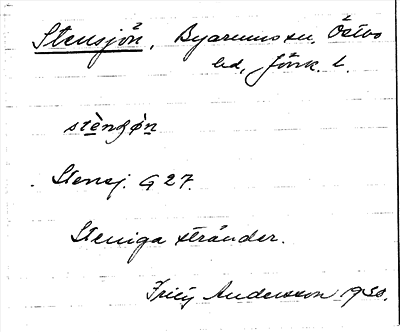 Stensjön, Byarums sn. Östbo
hd, Jönk. l.
stèngøn
Stensj. G 27.
Steniga stränder.
Fritz Andersson 1930.